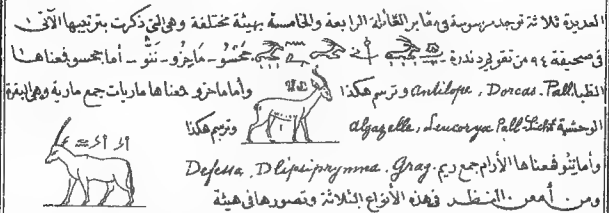 العديدة ثلاثة توجد مرسومة في مقابر العائلة الرابعة والخامسة بهيئة مختلفة وهي التي ذكرت بترتيبها الآتي
في صحيفة ٩٤ من تقويم دندرة - جحسو - مايزو - ننو - أما جحسو فمعناها
الظبا Antilope, Dorcas. Pall وترسم هكذا وأما ماحزو فمعناها ماريات جمع مارية وهي البقرة
الوحشية Algazelle, Leucoryx Pall Licht وترسم هكذا
وأما ننو فمعناها الأرام جمع ريم Defessa, D lipsiprymna. Gray.
ومن أمعن النظر في هذه الأنواع الثلاثة وتصورها في هيئة